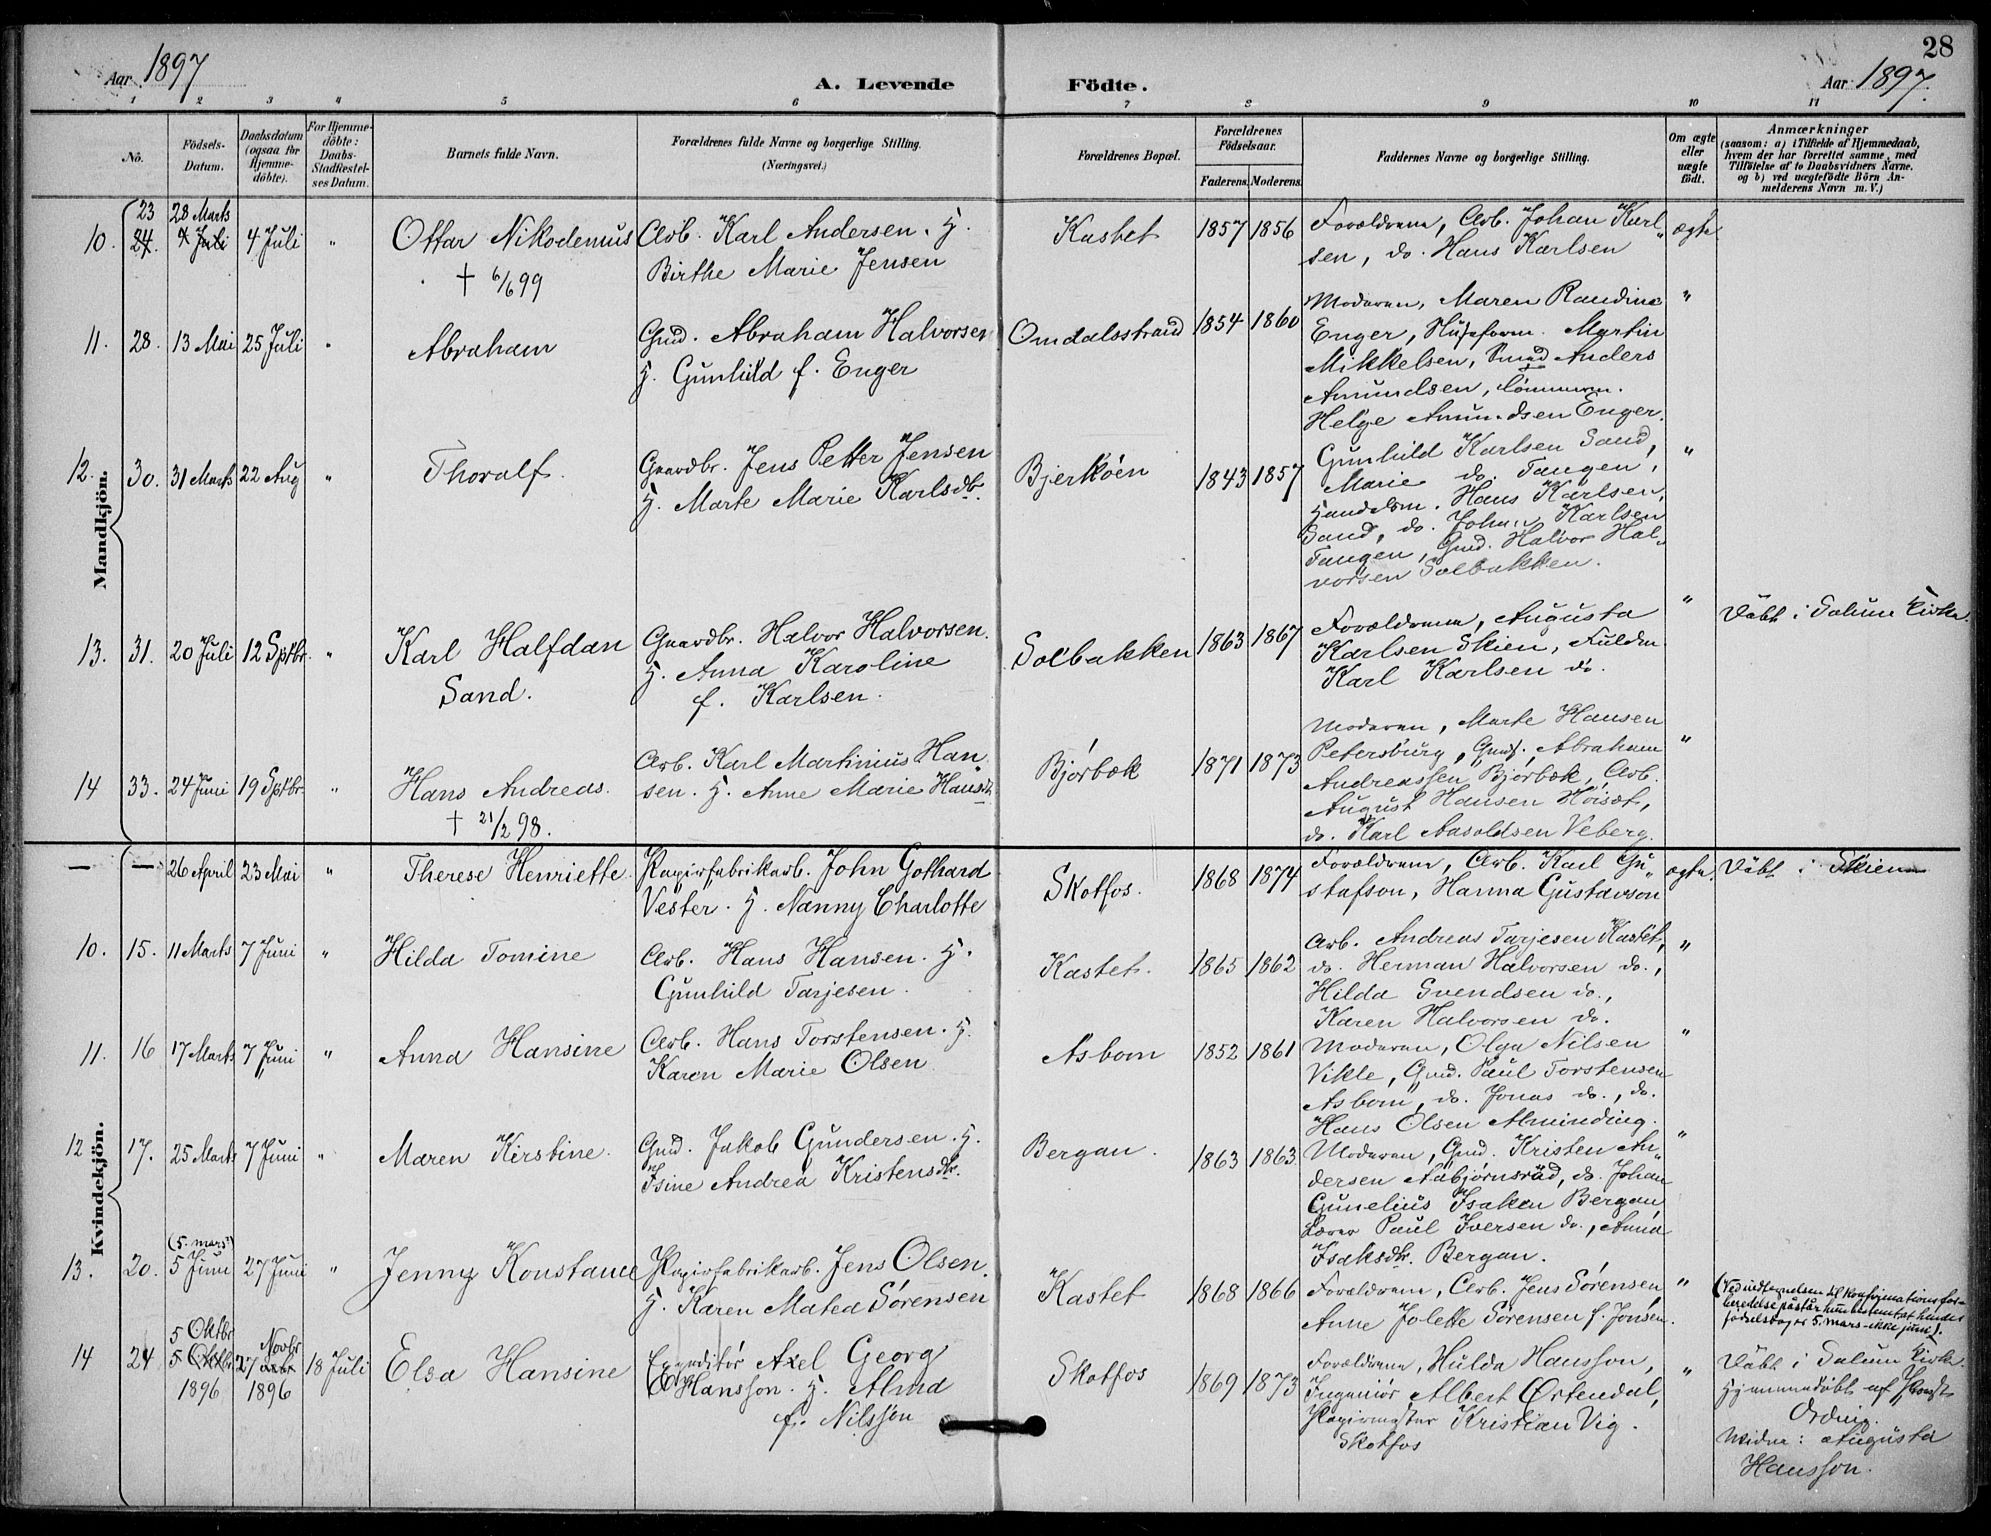 28
Aar 1897
A. Levende
Födte.
Aar 1897.
1 2 3 4 5 6 7 8 9 10 11
No.
Födsels-
Datum.
Daabsdatum
(ogsaa for
Hjemme-
döbte).
For Hjemme-
döbte:
Daabs-
Stadfæstel-
ses Datum.
Barnets fulde Navn.
Forældrenes fulde Navne og borgerlige Stilling.
(Næringsvei.)
Forældrenes Bopæl.
Forældrenes
Födselsaar.
Faderens. Moderens.
Faddernes Navne og borgerlige Stilling.
Om ægte
eller
uægte
födt.
Anmærkninger
(saasom: a) i Tilfælde af Hjemmedaab,
hvem der har forrettet samme, med
Tilföielse af to Daabsvidners Navne.
og b) ved uægtefödte Börn An-
melderens Navn m. V.)
Mandkjön.
10. 23 24. 28 Marts 4 Juli 4 Juli "
Ottar Nikodemus
† 6/6 99
Arb. Karl Andersen. H.
Birthe Marie Jensen
Kastet
1857 1856
Forældrene, Arb. Johan Karl-
sen, do. Hans Karlsen
ægte
11. 28. 13 Mai 25 Juli "
Abraham
Gmd. Abraham Halvorsen
H. Gunhild f. Enger
Omdalsstrand
1854 1860
Moderen, Maren Randine
Enger, Husform. Martin
Mikkelsen, Smed Anders
Amundsen, Tömmerm.
Helge Amundsen Enger.
"
12. 30. 31 Marts 22 Aug "
Thoralf.
Gaardbr. Jens Petter Jensen
H. Marte Marie Karlsdr.
Bjerköen
1843 1857
Gunhild Karlsen Sand,
Marie do. Tangen,
Handelsm. Hans Karlsen,
Sand, do. Johan Karlsen
Tangen, Gmd. Halvor Hal-
vorsen Solbakken.
"
13. 31. 20 Juli 12 Sptbr. "
Karl Halfdan
Sand.
Gaardbr. Halvor Halvorsen.
H. Anna Karoline
f. Karlsen.
Solbakken
1863 1867
Forældrene, Augusta
Karlsen Skien, Fuldm.
Karl Karlsen do.
"
Döbt i Solum Kirke.
14 33. 24 Juni 19 Sptbr. "
Hans Andreas.
† 21/2 98.
Arb. Karl Martinius Han-
sen. H. Anne Marie Hansdr.
Bjørbæk
1871 1873
Moderen, Marte Hansen
Petersburg, Gmd. Abraham
Andreassen Bjørbæk, Arb.
August Hansen Høisæt,
do. Karl Aasoldsen Veberg.
"
Kvindekjön.
— — 26 April 23 Mai "
Therese Henriette.
Papirfabrikarb. John Gothard
Vester. H. Nanny Charlotte
Skotfos.
1868 1874
Forældrene, Arb. Karl Gu-
stafson, Hanna Gustavson
ægte.
Döbt i Skien
10. 15. 11 Marts 7 Juni "
Hilda Tomine
Arb. Hans Hansen. H.
Gunhild Tarjesen.
Kastet.
1865 1862
Arb. Andreas Tarjesen Kastet,
do. Herman Halvorsen do.,
Hilda Svendsen do.,
Karen Halvorsen do.
"
11. 16 17 Marts 7 Juni "
Anna Hansine
Arb. Hans Torstensen. H.
Karen Marie Olsen
Asbom
1852 1861
Moderen, Olga Nilsen
Vikle, Gmd. Paul Torstensen
Asbom, do. Jonas do., do.
Hans Olsen Alminding.
"
12 17. 25 Marts 7 Juni "
Maren Kirstine.
Gmd. Jakob Gundersen. H.
Isine Andrea Kristensdr.
Bergan.
1863 1863
Moderen, Gmd. Kristen An-
dersen Aabjørnsrød, do. Johan
Gunelius Isaksen Bergan,
Lærer Paul Iversen do., Anna
Isaksdr. Bergan.
"
13. 20. (5. mars?) 5 Juni 27 Juni "
Jenny Konstance
Papirfabrikarb. Jens Olsen.
H. Karen Matea Sörensen
Kastet
1868 1866
Forældrene, Arb. Jens Sörensen,
Anne Jolette Sörensen f. Jonsen.
"
(Ved indtegnelsen til konfirmationsfor-
beredelse påstår hun bestemt at hendes
fødselsdag er 5. mars – ikke juni).
14 24 5 Oktbr 5 Oktbr 1896 Novbr 27 1896 18 Juli
Elsa Hansine
Expeditör Axel Georg
Hansson. H. Alma
f. Nilsson
Skotfos
1869 1873
Forældrene, Hulda Hansson,
Ingeniör Albert Ortendal,
Papirmester Kristian Vig.
Skotfos
"
Döbt i Solum Kirke.
Hjemmedöbt af Præst
Ording.
Vidne: Augusta
Hansson.